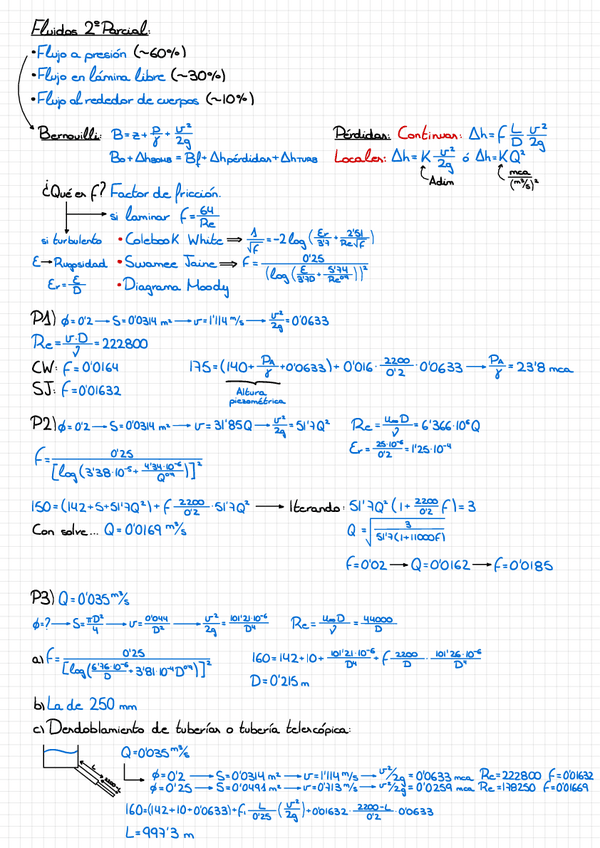 Fluidos 2º Parcial:
• Flujo a presión (~60%)
• Flujo en lámina libre (~30%)
• Flujo alrededor de cuerpos (~10%)
Bernouilli: B=z+P/γ+v²/2g
B₀+ΔhBOMB=Bf+Δhpérdidas+ΔhTURB
Pérdidas: Continuas: Δh=f L/D v²/2g
Locales: Δh=K v²/2g ó Δh=KQ²
Adim
mca/(m³/s)²
¿Qué es f? Factor de fricción.
si laminar f=64/Re
si turbulento • ColebooK White ⇒ 1/√f=-2log(Er/3'7+2'51/Re√f)
E→Rugosidad • Swamee Jaine ⇒ f=0'25/(log(E/3'7D+5'74/Re⁰'⁹))²
Er=E/D • Diagrama Moody
P1) ϕ=0'2→S=0'0314 m²→v=1'114 m/s→v²/2g=0'0633
Re=v·D/ν=222800
CW: f=0'0164
175=(140+PA/γ+0'0633)+0'016·2200/0'2·0'0633→PA/γ=23'8 mca
SJ: f=0'01632
Altura piezométrica
P2) ϕ=0'2→S=0'0314 m²→v=31'85Q→v²/2g=51'7Q²
Re=u∞D/ν=6'366·10⁶Q
Er=25·10⁻⁶/0'2=1'25·10⁻⁴
f=0'25/[log(3'38·10⁻⁵+4'34·10⁻⁶/Q⁰'⁹)]²
150=(142+5+51'7Q²)+f 2200/0'2·51'7Q²→Iterando: 51'7Q²(1+2200/0'2 f)=3
Con solve... Q=0'0169 m³/s
Q=√(3/51'7(1+11000f))
f=0'02→Q=0'0162→f=0'0185
P3) Q=0'035 m³/s
ϕ=?→S=πD²/4→v=0'044/D²→v²/2g=101'21·10⁻⁶/D⁴
Re=u∞D/ν=44000/D
a) f=0'25/[log(6'76·10⁻⁶/D+3'81·10⁻⁴D⁰'⁹)]²
160=142+10+101'21·10⁻⁶/D⁴+f 2200/D·101'26·10⁻⁶/D⁴
D=0'215 m
b) La de 250 mm
c) Desdoblamiento de tuberías o tubería telescópica:
L
2200-L
Q=0'035 m³/s
ϕ=0'2→S=0'0314 m²→v=1'114 m/s→v²/2g=0'0633 mca Re=222800 f=0'01632
ϕ=0'25→S=0'0491 m²→v=0'713 m/s→v²/2g=0'0259 mca Re=178250 f=0'01669
160=(142+10+0'0633)+f·L/0'25(v²/2g)+0'01632·2200-L/0'2·0'0633
L=997'3 m